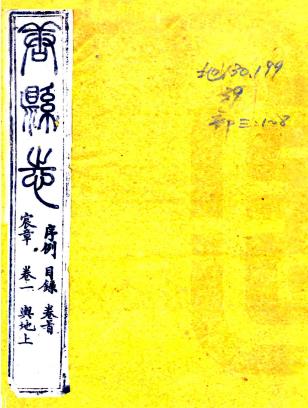 唐縣志
序例 目錄 卷首
宸章 卷一 輿地上
地130.199
39
三:1-8